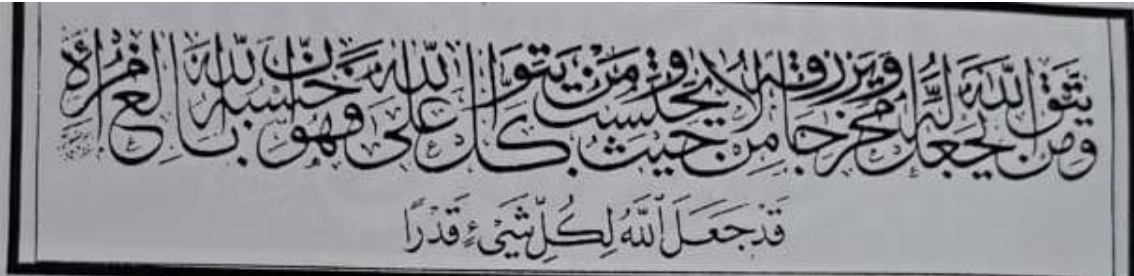 ومن يتق الله يجعل له مخرجا ويرزقه من حيث لا يحتسب ومن يتوكل على الله فهو حسبه إن الله بالغ أمره
قَدْ جَعَلَ ٱللَّهُ لِكُلِّ شَيْءٍ قَدْرًا